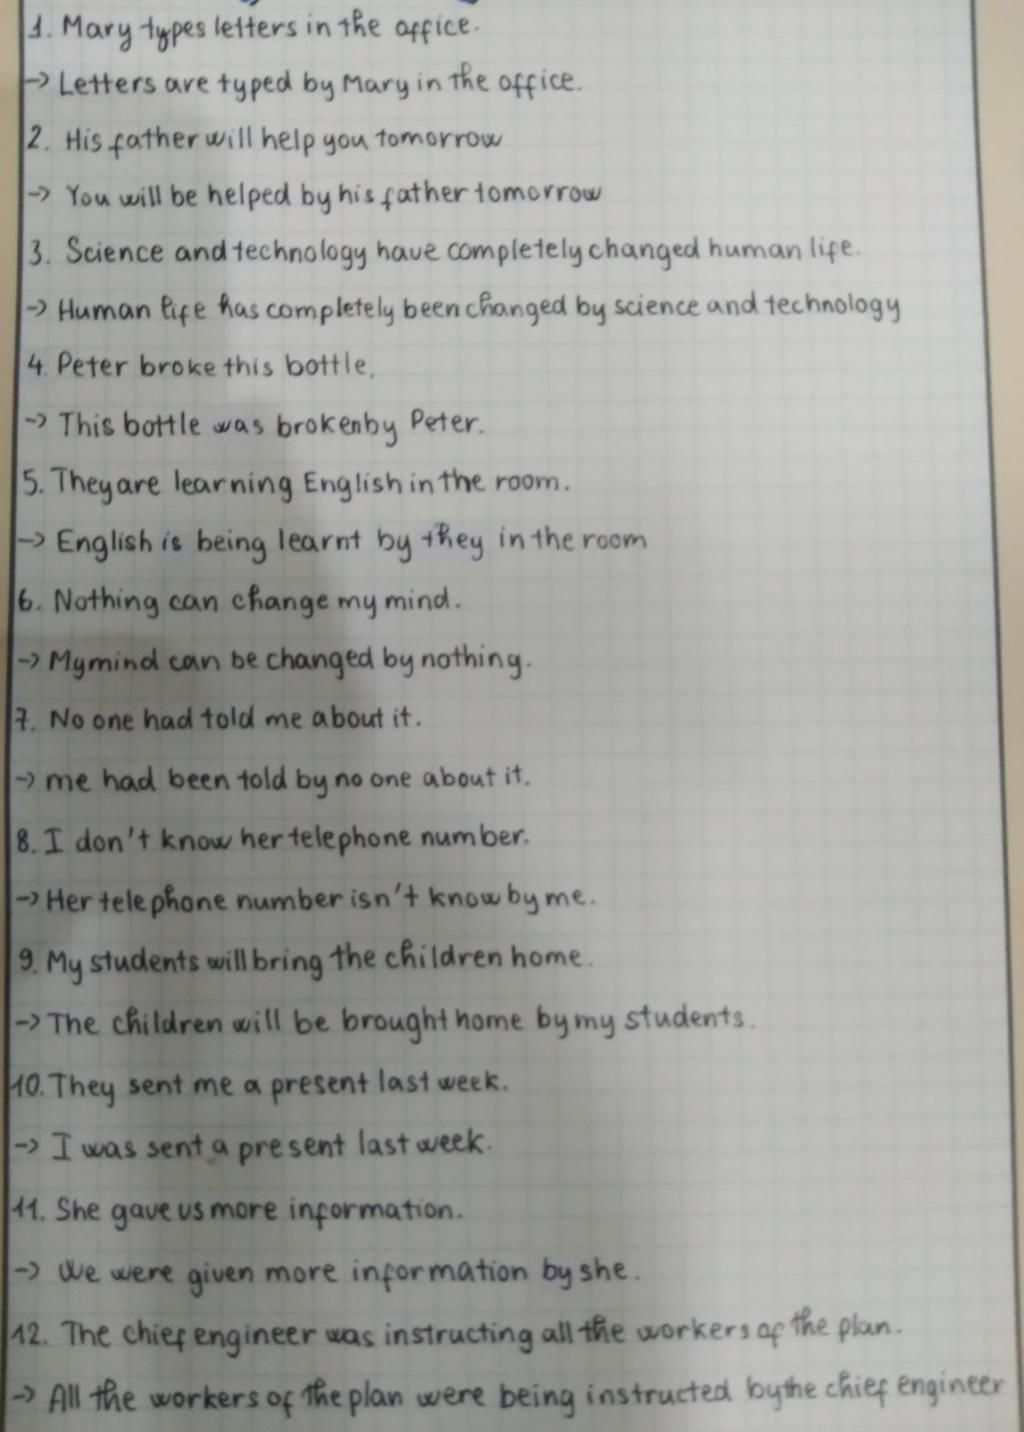 1. Mary types letters in the office.
-> Letters are typed by Mary in the office.
2. His father will help you tomorrow
-> You will be helped by his father tomorrow
3. Science and technology have completely changed human life.
-> Human life has completely been changed by science and technology
4. Peter broke this bottle.
-> This bottle was broken by Peter.
5. They are learning English in the room.
-> English is being learnt by they in the room
6. Nothing can change my mind.
-> My mind can be changed by nothing.
7. No one had told me about it.
-> me had been told by no one about it.
8. I don't know her telephone number.
-> Her telephone number isn't know by me.
9. My students will bring the children home.
-> The children will be brought home by my students.
10. They sent me a present last week.
-> I was sent a present last week.
11. She gave us more information.
-> We were given more information by she.
12. The chief engineer was instructing all the workers of the plan.
-> All the workers of the plan were being instructed by the chief engineer